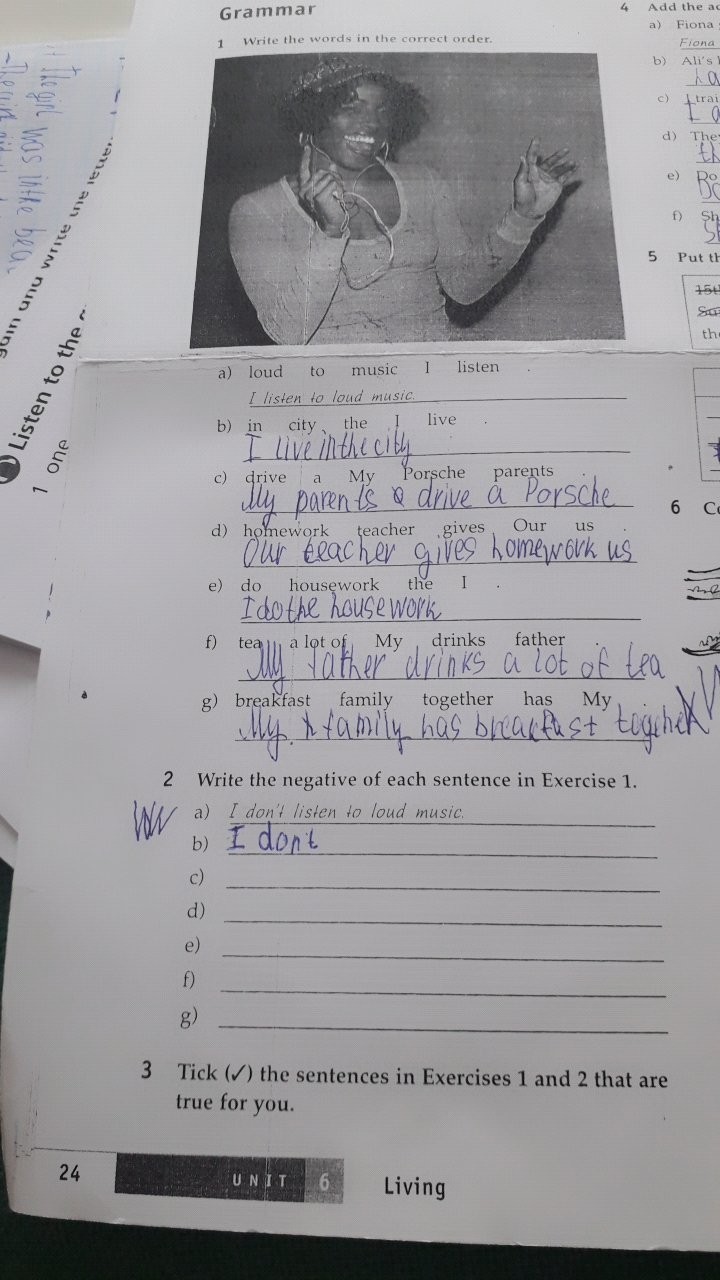 Grammar
1 Write the words in the correct order.
a) loud to music I listen .
I listen to loud music.
b) in city the I live .
I live in the city
c) drive a My Porsche parents .
My parents drive a Porsche
d) homework teacher gives Our us .
Our teacher gives homework us
e) do housework the I .
I do the housework
f) tea a lot of My drinks father .
My father drinks a lot of tea
g) breakfast family together has My .
My family has breakfast
2 Write the negative of each sentence in Exercise 1.
a) I don't listen to loud music.
b) I don't
c)
d)
e)
f)
g)
3 Tick (✓) the sentences in Exercises 1 and 2 that are
true for you.
24 UNIT 6 Living
4 Add the
a) Fiona
Fiona
b) Ali's
c) I
I
d)
e)
f)
5 Put
15th
the
6
the girl was in the
and write the
Listen to the
1 one